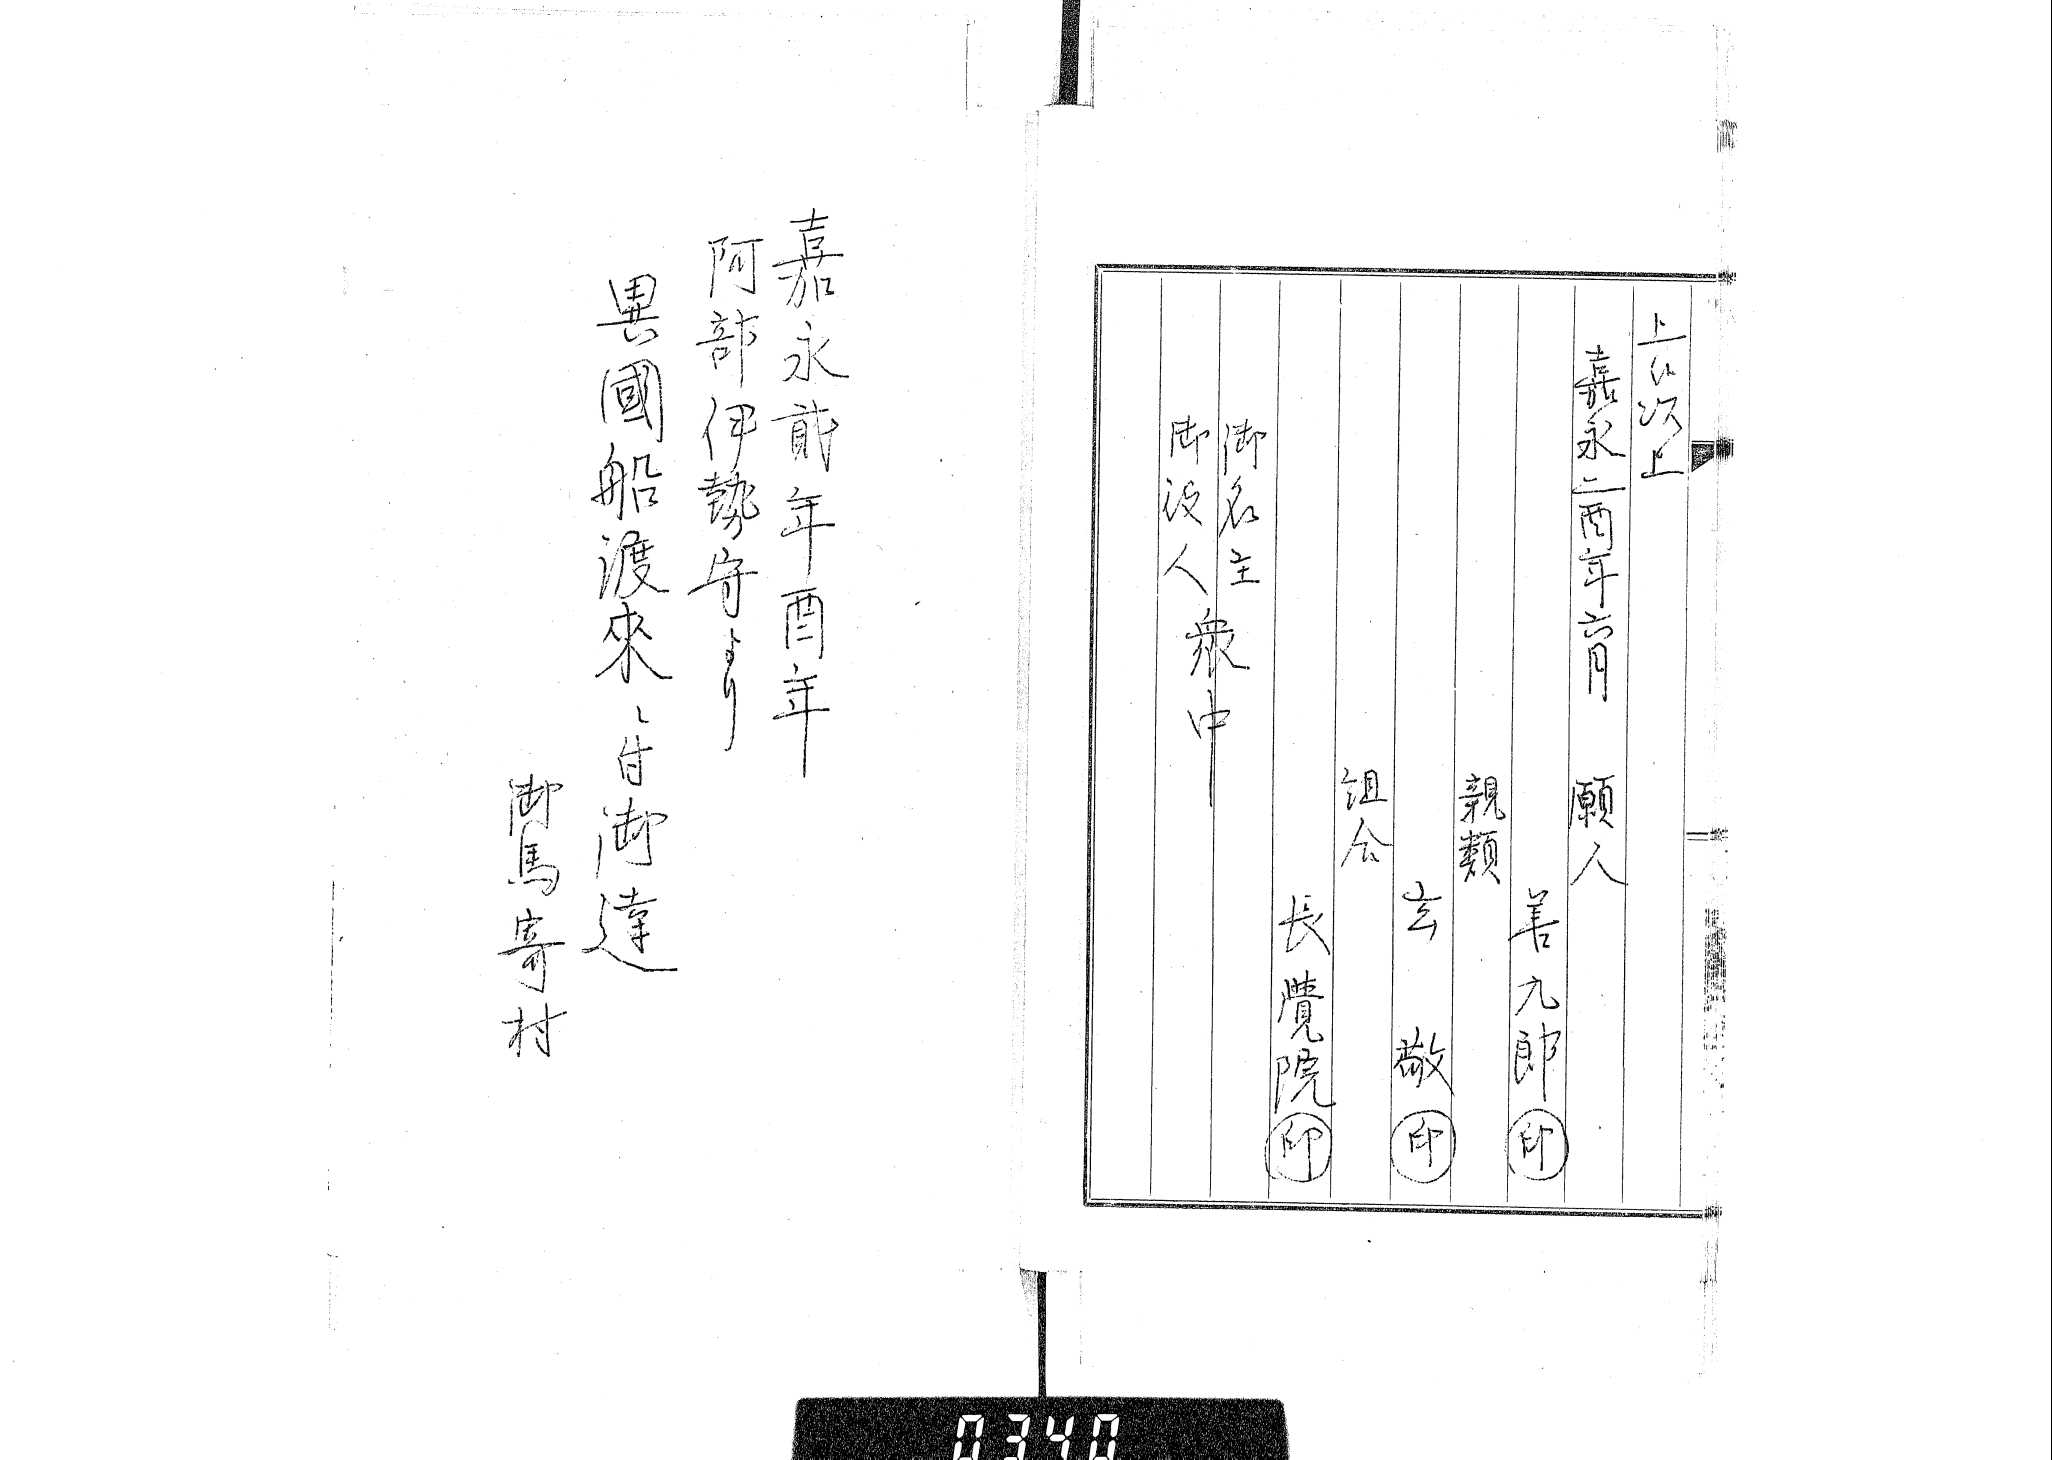 上候以上
嘉永二酉年六月　願人
善九郎㊞
親類
玄　敬㊞
組合
長覺院㊞
御名主
御役人
衆中
嘉永貳年酉年
阿部伊勢守より
異國船渡來ニ付御達
御馬寄村
0340